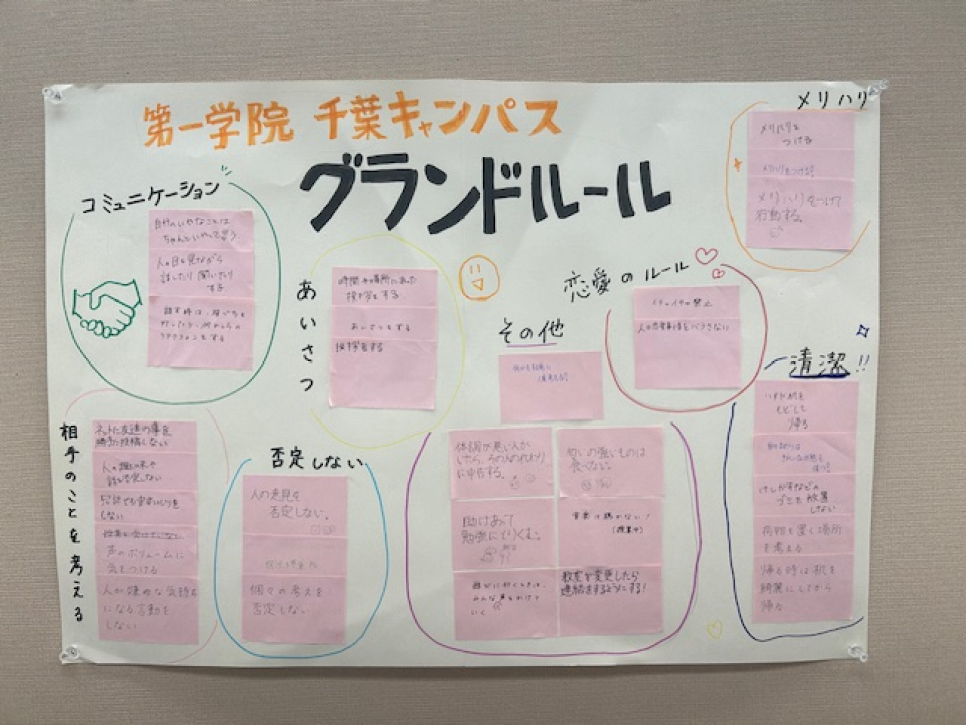 第一学院 千葉キャンパス
グランドルール
コミュニケーション
自分のいやなことは
ちゃんといやって言う
人の目を見ながら
話したり 聞いたり
する
話す時は、
リアクションをする
あいさつ
時間や場所にあった
挨拶をする
あいさつをする
挨拶をする
メリハリ
メリハリを
つける
メリハリをつける
メリハリをつけて
行動する。
恋愛のルール
イチャイチャ禁止
人の恋愛事情をバラさない
その他
体調が悪い人が
いたら、その人の代わり
に申告する。
匂いの強いものは
食べない。
助けあって
勉強にとりくむ。
音楽は聴かない!
(授業中)
遊びに行くときは、
みんな声をかけて
いく
教室が変更したら
連絡をするようにする!
清潔!!
イスや机を
もどして
帰る
けしかすなどの
ゴミを放置
しない
荷物を置く場所
を考える
帰る時は机を
綺麗にしてから
帰る
相手のことを考える
ネットに友達の事を
勝手に投稿しない
人の趣味や
話を否定しない
冗談でも
しない
声のボリュームに
気をつける
人が嫌な気持ち
になる言動を
しない
否定しない
人の意見を
否定しない。
個々の考えを
否定しない